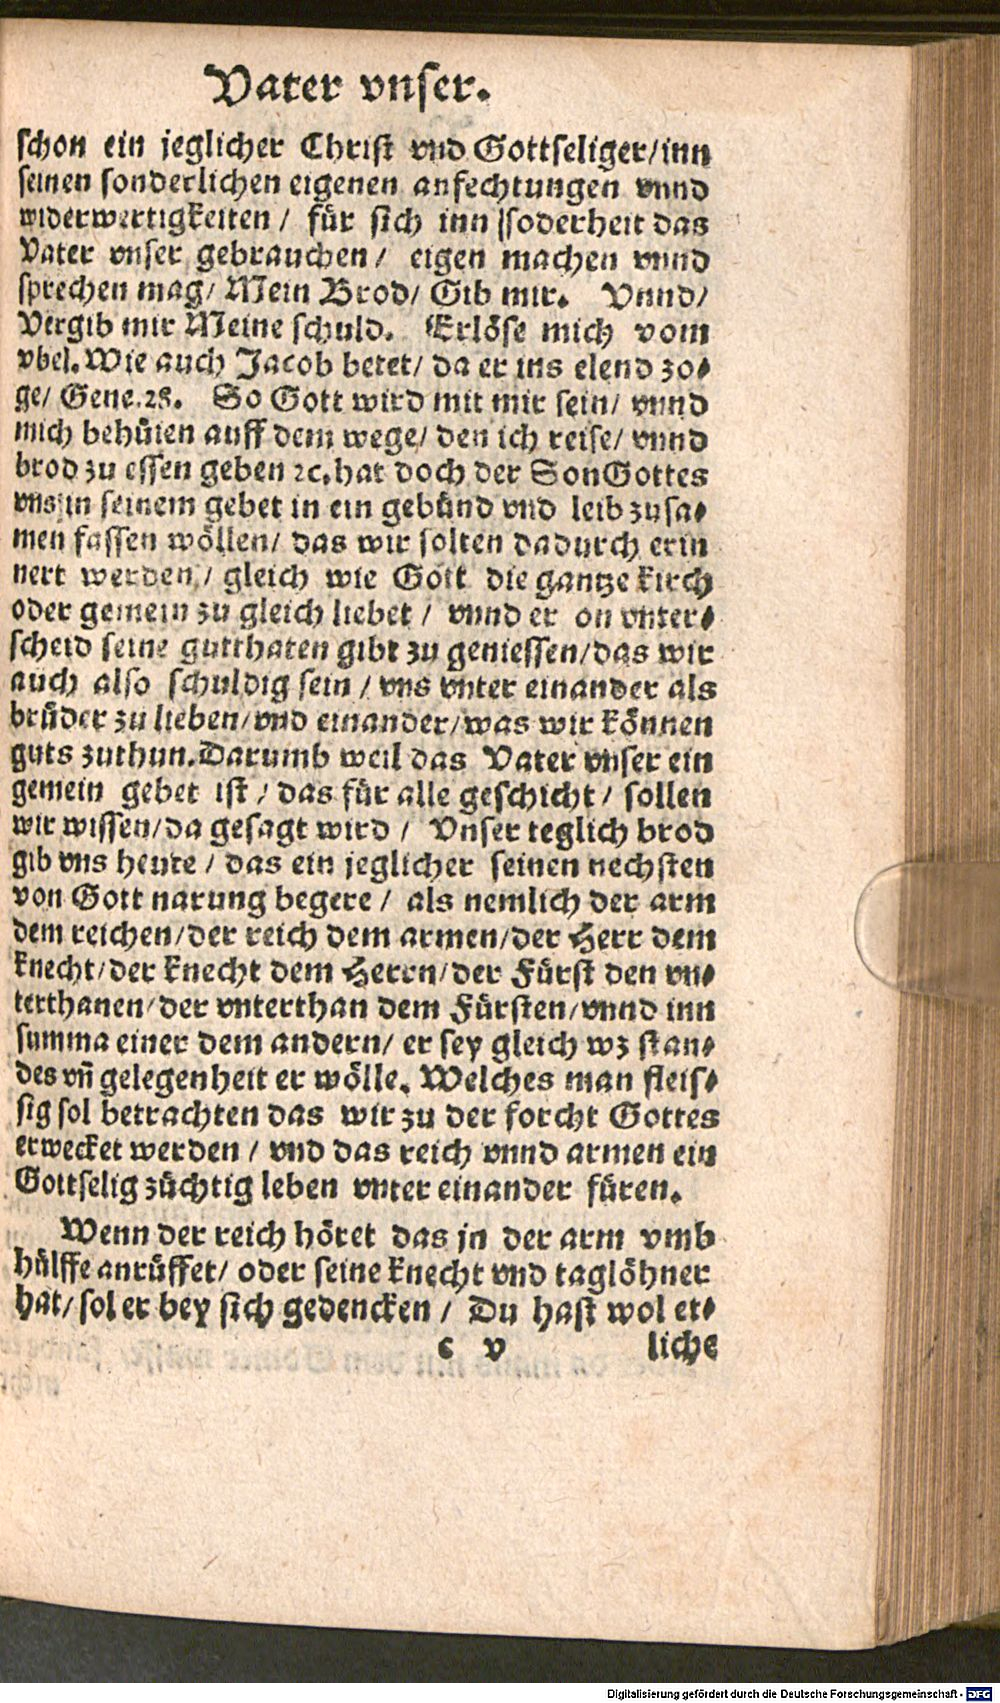 Vater vnser.
schon ein jeglicher Christ vnd Gottseliger/inn
seinen sonderlichen eigenen anfechtungen vnnd
widerwertigkeiten / für sich inn soderheit das
Vater vnser gebrauchen / eigen machen vnnd
sprechen mag/ Mein Brod/ Gib mir. Vnnd/
Vergib mir Meine schuld. Erlöse mich vom
vbel. Wie auch Jacob betet/ da er ins elend zo⸗
ge/ Gene.28. So Gott wird mit mir sein/ vnnd
mich behüten auff dem wege/ den ich reise/ vnnd
brod zu essen geben ꝛc. hat doch der Son Gottes
vns in seinem gebet in ein gebünd vnd leib zusa⸗
men fassen wöllen/ das wir solten dadurch erin
nert werden / gleich wie Gott die gantze kirch
oder gemein zu gleich liebet / vnnd er on vnter⸗
scheid seine gutthaten gibt zu geniessen/das wir
auch also schuldig sein / vns vnter einander als
brüder zu lieben/vnd einander/was wir können
guts zuthun. Darumb weil das Vater vnser ein
gemein gebet ist / das für alle geschicht / sollen
wir wissen/da gesagt wird / Vnser teglich brod
gib vns heute / das ein jeglicher seinen nechsten
von Gott narung begere / als nemlich der arm
dem reichen/der reich dem armen/der Herr dem
knecht/der knecht dem Herrn/der Fürst den vn⸗
terthanen/der vnterthan dem Fürsten/vnnd inn
summa einer dem andern/ er sey gleich wz stan⸗
des vn̄ gelegenheit er wölle. Welches man fleis⸗
sig sol betrachten das wir zu der forcht Gottes
erwecket werden / vnd das reich vnnd armen ein
Gottselig züchtig leben vnter einander füren.
Wenn der reich höret das jn der arm vmb
hülffe anrüffet/ oder seine knecht vnd taglöhner
hat/ sol er bey sich gedencken / Du hast wol et⸗
c v liche
Digitalisierung gefördert durch die Deutsche Forschungsgemeinschaft - DFG